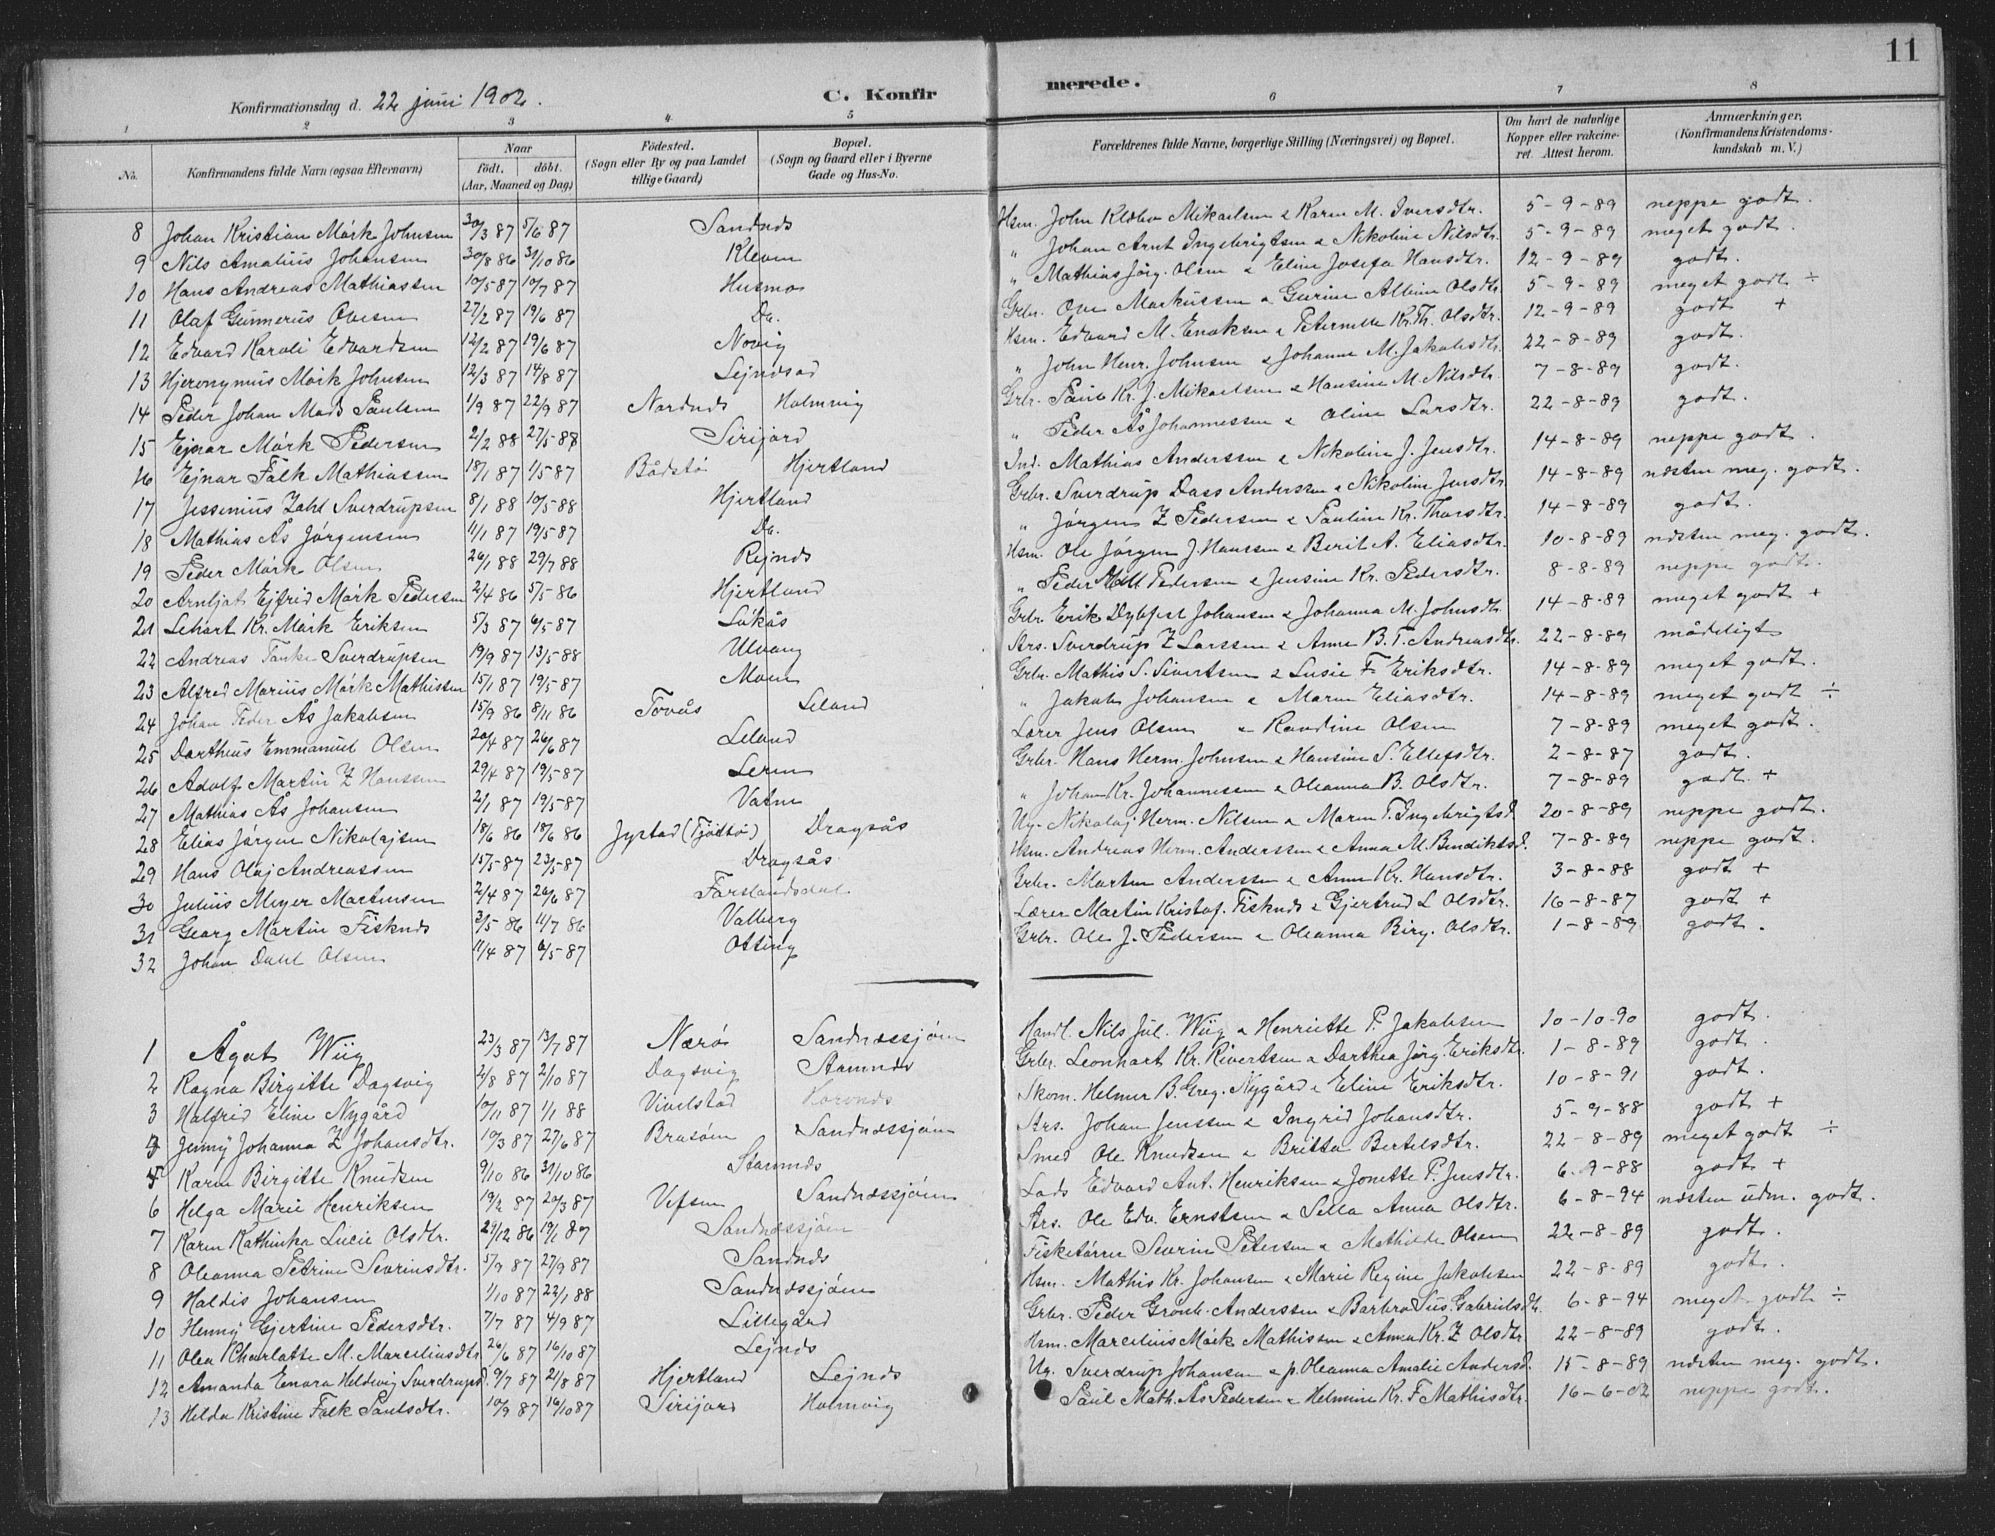 11
Konfirmationsdag d. 22 juni 1902. C. Konfir merede.
1 2 3 4 5 6 7 8
No. Konfirmandens fulde Navn (ogsaa Efternavn) Naar födt. döbt. (Aar, Maaned og Dag) Födested. (Sogn eller By og paa Landet tillige Gaard) Bopæl. (Sogn og Gaard eller i Byerne Gade og Hus-No. Forældrenes fulde Navne, borgerlige Stilling (Næringsvei) og Bopæl. Om havt de naturlige Kopper eller vakcineret. Attest herom. Anmærkninger. (Konfirmandens Kristendomskundskab m. V.)
8 Johan Kristian Mörk Johnsen 30/3 87 5/6 87 Sandnes Hsm. John Klæbo Mikaelsen & Karen M. Iversdtr. 5-9-89 neppe godt.
9 Nils Amalius Johansen 30/8 86 31/10 86 Kleven " Johan Arnt Ingebrigtsen & Nikoline Nilsdtr. 5-9-89 meget godt.
10 Hans Andreas Mathiassen 10/5 87 10/7 87 Husmo " Mathias Jörg. Olsen & Eline Josefa Hansdtr. 12-9-89 godt.
11 Olaf Gunnerus Ovesen 27/2 87 19/6 87 Do. Grbr. Ove Markussen & Gurine Albine Olsdtr. 5-9-89 meget godt ÷
12 Edvard Karoli Edvardsen 12/2 87 19/6 87 Novig Hsm. Edvard M. Enoksen & Peternelle Kr. Th. Olsdtr. 12-9-89 godt +
13 Hjeronymus Mörk Johnsen 12/3 87 14/8 87 " John Henr. Johnsen & Johanna M. Jakobsdtr. 22-8-89 godt.
14 Peder Johan Mads Paulsen 1/9 87 22/9 87 Nordnes Holmvig Grbr. Paul Kr. J. Mikaelsen & Hansine M. Nilsdtr. 7-8-89 godt.
15 Ejnar Mörk Pedersen 2/2 88 27/5 88 Sirijord " Peder Ås Johannessen & Oline Larsdtr. 22-8-89 godt.
16 Ejnar Falk Mathiassen 18/1 87 1/5 87 Bådstö Hjertland Ind. Mathias Anderssen & Nikoline J. Jensdtr. 14-8-89 neppe godt.
17 Jessenius Zahl Sverdrupsen 8/1 88 10/5 88 Hjertland Grbr. Sverdrup Dass Anderssen & Nikoline Jensdtr 14-8-89 næsten meg. godt.
18 Mathias Ås Jörgensen 11/1 87 19/5 87 Do. " Jörgen Z Pedersen & Pauline Kr. Thorsdtr. 14-8-89 godt.
19 Peder Mörk Olsen 26/1 88 29/7 88 Rejnes Hsm. Ole Jörgen J. Hanssen & Berit A. Eliasdtr. 10-8-89 næsten meg. godt.
20 Arnljot Ejfrid Mörk Pedersen 2/4 86 5/5 86 Hjertland " Peder Pedersen & Jensine Kr. Pedersdtr. 8-8-89 neppe godt.
21 Kr. Mörk Eriksen 5/3 87 6/5 87 Lökås Grbr. Erik Dybfest Johansen & Johanna M. Johnsdtr. 14-8-89 meget godt +
22 Andreas Tanke Sverdrupsen 19/9 87 13/5 88 Ulvang Ars. Sverdrup Z Larssen & Anne B. T. Andreasdtr. 22-8-89 mådeligt
23 Alfred Marius Mörk Mathissen 15/1 87 19/5 87 Moen Grbr. Mathis S. Sivertsen & Lusie F Eriksdtr. 14-8-89 meget godt.
24 Johan Peder Ås Jakobsen 15/9 86 8/11 86 Tovås Leland " Jakob Johansen & Maren Eliasdtr. 14-8-89 meget godt ÷
25 Dortheus Emmanuel Olsen 20/4 87 26/6 87 Leland Lærer Jens Olsen & Randine Olsen 7-8-89 meget godt.
26 Adolf Martin Z Hanssen 29/4 87 19/5 87 Leren Grbr. Hans Herm. Johnsen & Hansine S. Ellefsdtr. 2-8-87 godt.
27 Mathias Ås Johansen 2/1 87 19/5 87 Vatne " Johan Kr. Johannessen & Oleanna B. Olsdtr. 7-8-89 godt +
28 Elias Jörgen Nikolajsen 18/6 86 18/6 86 Jystad (Tjödtö) Dragsås Ug. Nikolaj Herm. Nilsen & Maren T. Ingebrigtsd. 20-8-89 neppe godt.
29 Hans Olaj Andreassen 15/5 87 23/5 87 Dragsås Hsm. Andreas Herm. Anderssen & Anna M. Bendiktsd. 7-8-89 neppe godt.
30 Julius Meyer Martensen 2/4 87 26/6 87 Forslandsdal Grbr. Marten Anderssen & Anne Kr. Hansdtr. 3-8-88 godt +
31 Georg Martin Fisknes 3/5 86 4/7 86 Valberg Lærer Martin Kristof. Fisknes & Gjertrud L Olsdtr. 16-8-87 godt +
32 Johan Dahl Olsen 11/4 87 6/5 87 Otting Grbr. Ole J. Pedersen & Oleanna Birg. Olsdtr. 1-8-89 godt.
1 Ågot Wiig 23/3 87 13/7 87 Nærö Sandnæssjöen Handl. Nils Jul. Wiig & Henriette P. Jakobsen 10-10-90 godt.
2 Ragna Birgitte Dagsvig 2/8 87 2/10 87 Dagsvig Stamnes Grbr. Leonhart Kr. Sivertsen & Dorthea Jörg. Eriksdtr. 1-8-89 godt.
3 Halfrid Eline Nygård 10/11 87 1/1 88 Vivelstad Skom. Helmer B. Greg. Nygård & Eline Eriksdtr. 10-8-91 godt.
4 Jenny Johanna Z Johansdtr. 10/3 87 27/6 87 Brasöen Sandnæssjöen Ars. Johan Jenssen & Ingrid Johansdtr. 5-9-88 godt +
5 Karen Birgitte Knudsen 9/10 86 31/10 86 Stamnes Smed Ole Knudsen & Britta Bertelsdtr. 22-8-89 meget godt ÷
6 Helga Marie Henriksen 19/2 87 20/3 87 Vefsen Sandnæssjöen Lods Edvard Ant. Henriksen & Jonette P. Jensdtr. 6-9-88 godt +
7 Karen Kathinka Lucie Olsdtr. 27/12 86 19/1 87 Sandnæssjöen Ars. Ole Edv. Ernstsen & Sella Anna Olsdtr. 6-8-94 næsten udm. godt.
8 Oleanna Petrine Severinsdtr. 5/9 87 27/9 87 Sandnes Fisketörrer Severin Petersen & Mathilde Olsen 22-8-89 godt.
9 Haldis Johansen 1/10 87 22/1 88 Sandnæssjöen Hsm. Mathis Kr. Johansen & Marie Regine Jakobsen 22-8-89 godt.
10 Henny Gjertine Pedersdtr. 7/7 87 4/9 87 Lillegård Grbr. Peder Grönb. Anderssen & Barbro Sus. Gabrielsdtr. 6-8-94 meget godt ÷
11 Olea Charlotte M. Marceliusdtr 26/6 87 16/10 87 Lejnes Hsm. Marcelius Mörk Mathissen & Anna Kr. Z Olsdtr 22-8-89 godt.
12 Amanda Enora Heldevig Sverdrupsd. 9/7 87 21/8 87 Hjertland Lejnes Ug. Sverdrup Johansen & p. Oleanna Amalie Andersd. 15-8-89 næsten meg. godt.
13 Hilda Kristine Falk Paulsdtr. 10/9 87 16/10 87 Sirijord Holmvig Paul Math. Ås Pedersen & Helmine Kr. F Mathisdtr. 16-6-02 neppe godt.